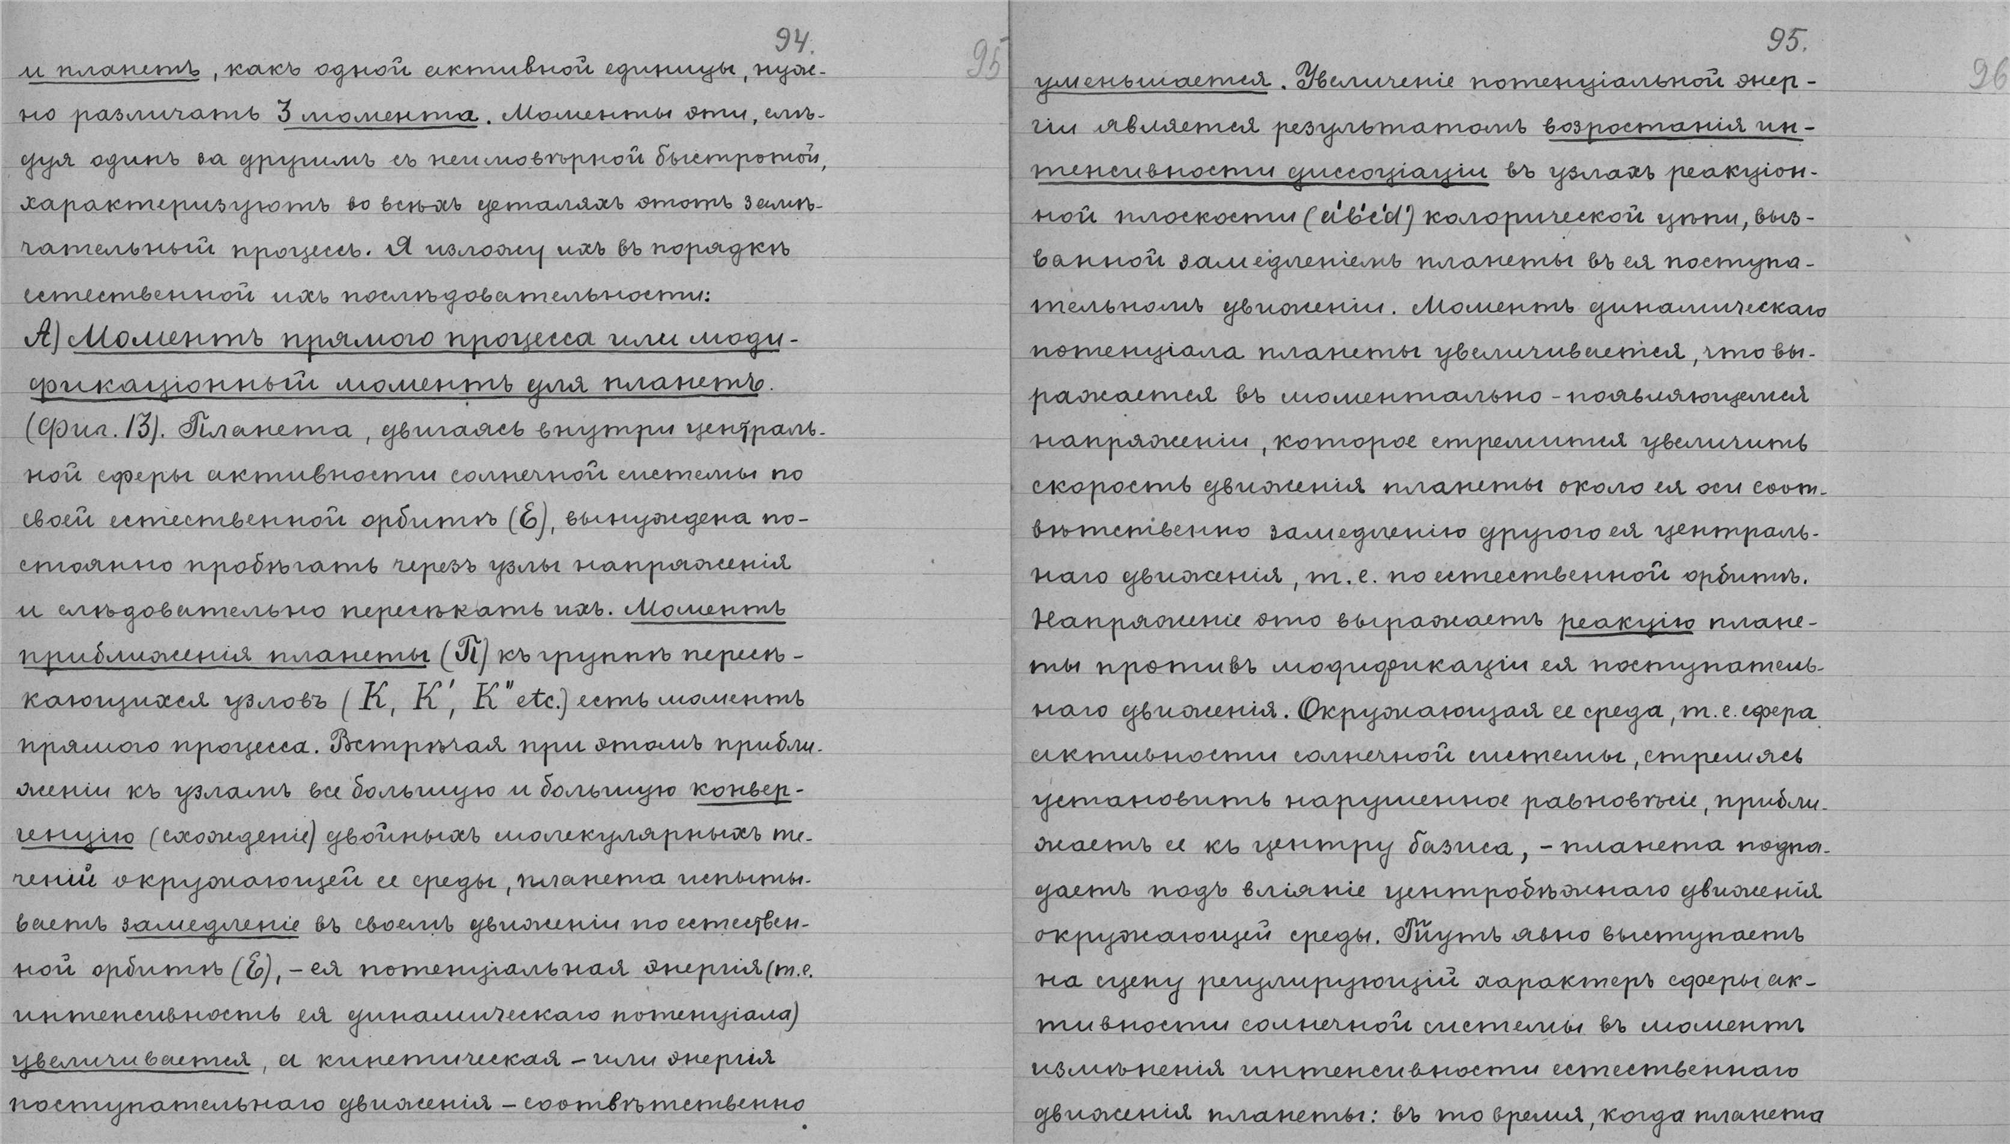 94.
и планетъ, какъ одной активной единицы, нуж-
но различать 3 момента. Моменты эти, слѣ-
дуя одинъ за другимъ съ неимовѣрной быстротой,
характеризуютъ во всѣхъ деталяхъ этотъ замѣ-
чательный процессъ. Я изложу ихъ въ порядкѣ
естественной ихъ послѣдовательности:
А) Моментъ прямого процесса или моди-
фикаціонный моментъ для планетъ.
(Фиг. 13). Планета, двигаясь внутри централь-
ной сферы активности солнечной системы по
своей естественной орбитѣ (Е), вынуждена по-
стоянно пробѣгать черезъ узлы напряженія
и слѣдовательно пересѣкать ихъ. Моментъ
приближенія планеты (П) къ группѣ пересѣ-
кающихся узловъ (К, К', К" etc.) есть моментъ
прямого процесса. Встрѣчая при этомъ прибли-
женіи къ узламъ все большую и большую конвер-
генцію (схожденіе) двойныхъ молекулярныхъ те-
ченій окружающей ее среды, планета испыты-
ваетъ замедленіе въ своемъ движеніи по естествен-
ной орбитѣ (Е), – ея потенціальная энергія (т.е.
интенсивность ея динамическаго потенціала)
увеличивается, а кинетическая – или энергія
поступательнаго движенія – соотвѣтственно
95
95.
96
уменьшается. Увеличеніе потенціальной энер-
гіи является результатомъ возростанія ин-
тенсивности диссоціаціи въ узлахъ реакціон-
ной плоскости (a'b'c'd') калорической цѣпи, выз-
ванной замедленіемъ планеты въ ея поступа-
тельномъ движеніи. Моментъ динамическаго
потенціала планеты увеличивается, что вы-
ражается въ моментально-появляющемся
напряженіи, которое стремится увеличить
скорость движенія планеты около ея оси соот-
вѣтственно замедленію другого ея централь-
наго движенія, т.е. по естественной орбитѣ.
Напряженіе это выражаетъ реакцію плане-
ты противъ модификаціи ея поступатель-
наго движенія. Окружающая ее среда, т.е. сфера
активности солнечной системы, стремясь
установить нарушенное равновѣсіе, прибли-
жаетъ ее къ центру базиса, – планета подпа-
даетъ подъ вліяніе центробѣжнаго движенія
окружающей среды. Тутъ явно выступаетъ
на сцену регулирующій характеръ сферы ак-
тивности солнечной системы въ моментъ
измѣненія интенсивности естественнаго
движенія планеты: въ то время, когда планета